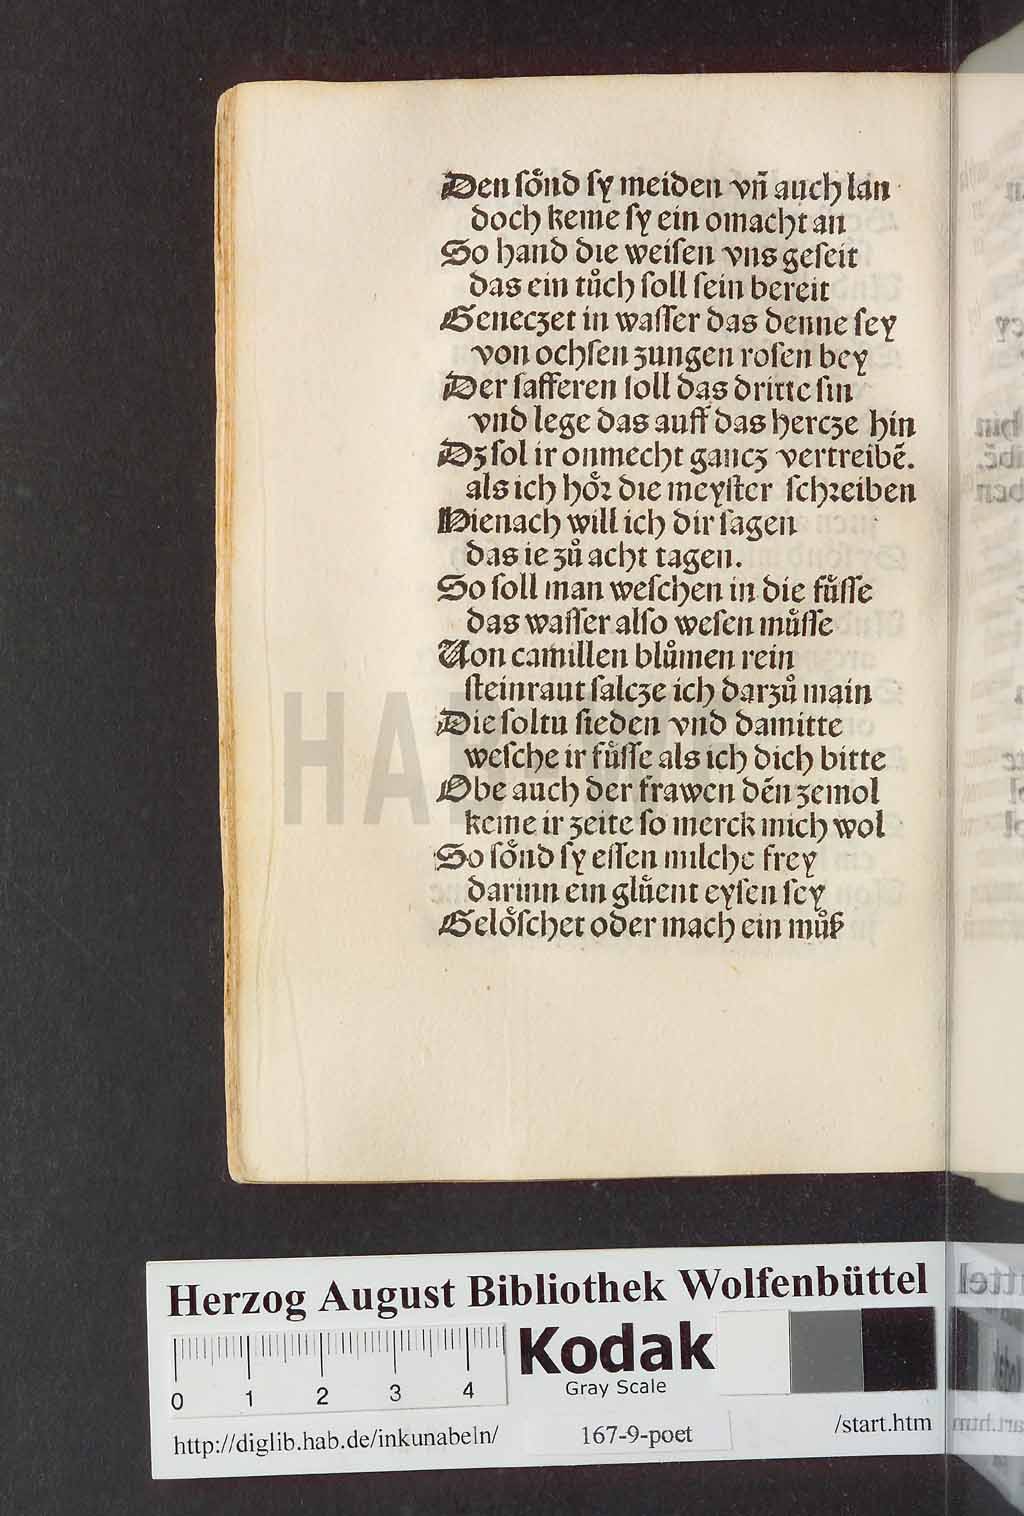 Den soͤnd sy meiden vñ auch lan
doch keme sy ein omacht an
So hand die weisen vns geseit
das ein tuͦch soll sein bereit
Geneczet in wasser das denne sey
von ochsen zungen rosen bey
Der safferen soll das dritte sin
vnd lege das auff das hercze hin
Dz sol ir onmecht gancz vertreibē.
als ich hoͤꝛ die meyster schꝛeiben
Hienach will ich dir sagen
das ie zuͦ acht tagen.
So soll man weschen in die fuͤsse
das wasser also wesen muͤsse
Von camillen bluͦmen rein
steinraut salcze ich darzuͦ main
Die soltu sieden vnd damitte
wesche ir fuͤsse als ich dich bitte
Obe auch der frawen dēn zemol
keme ir zeite so merck mich wol
So soͤnd sy essen milche frey
darinn ein gluͤent eysen sey
Geloͤschet oder mach ein muͦß
HAB
Herzog August Bibliothek Wolfenbüttel
0 1 2 3 4
Kodak
Gray Scale
http://diglib.hab.de/inkunabeln/ 167-9-poet /start.htm